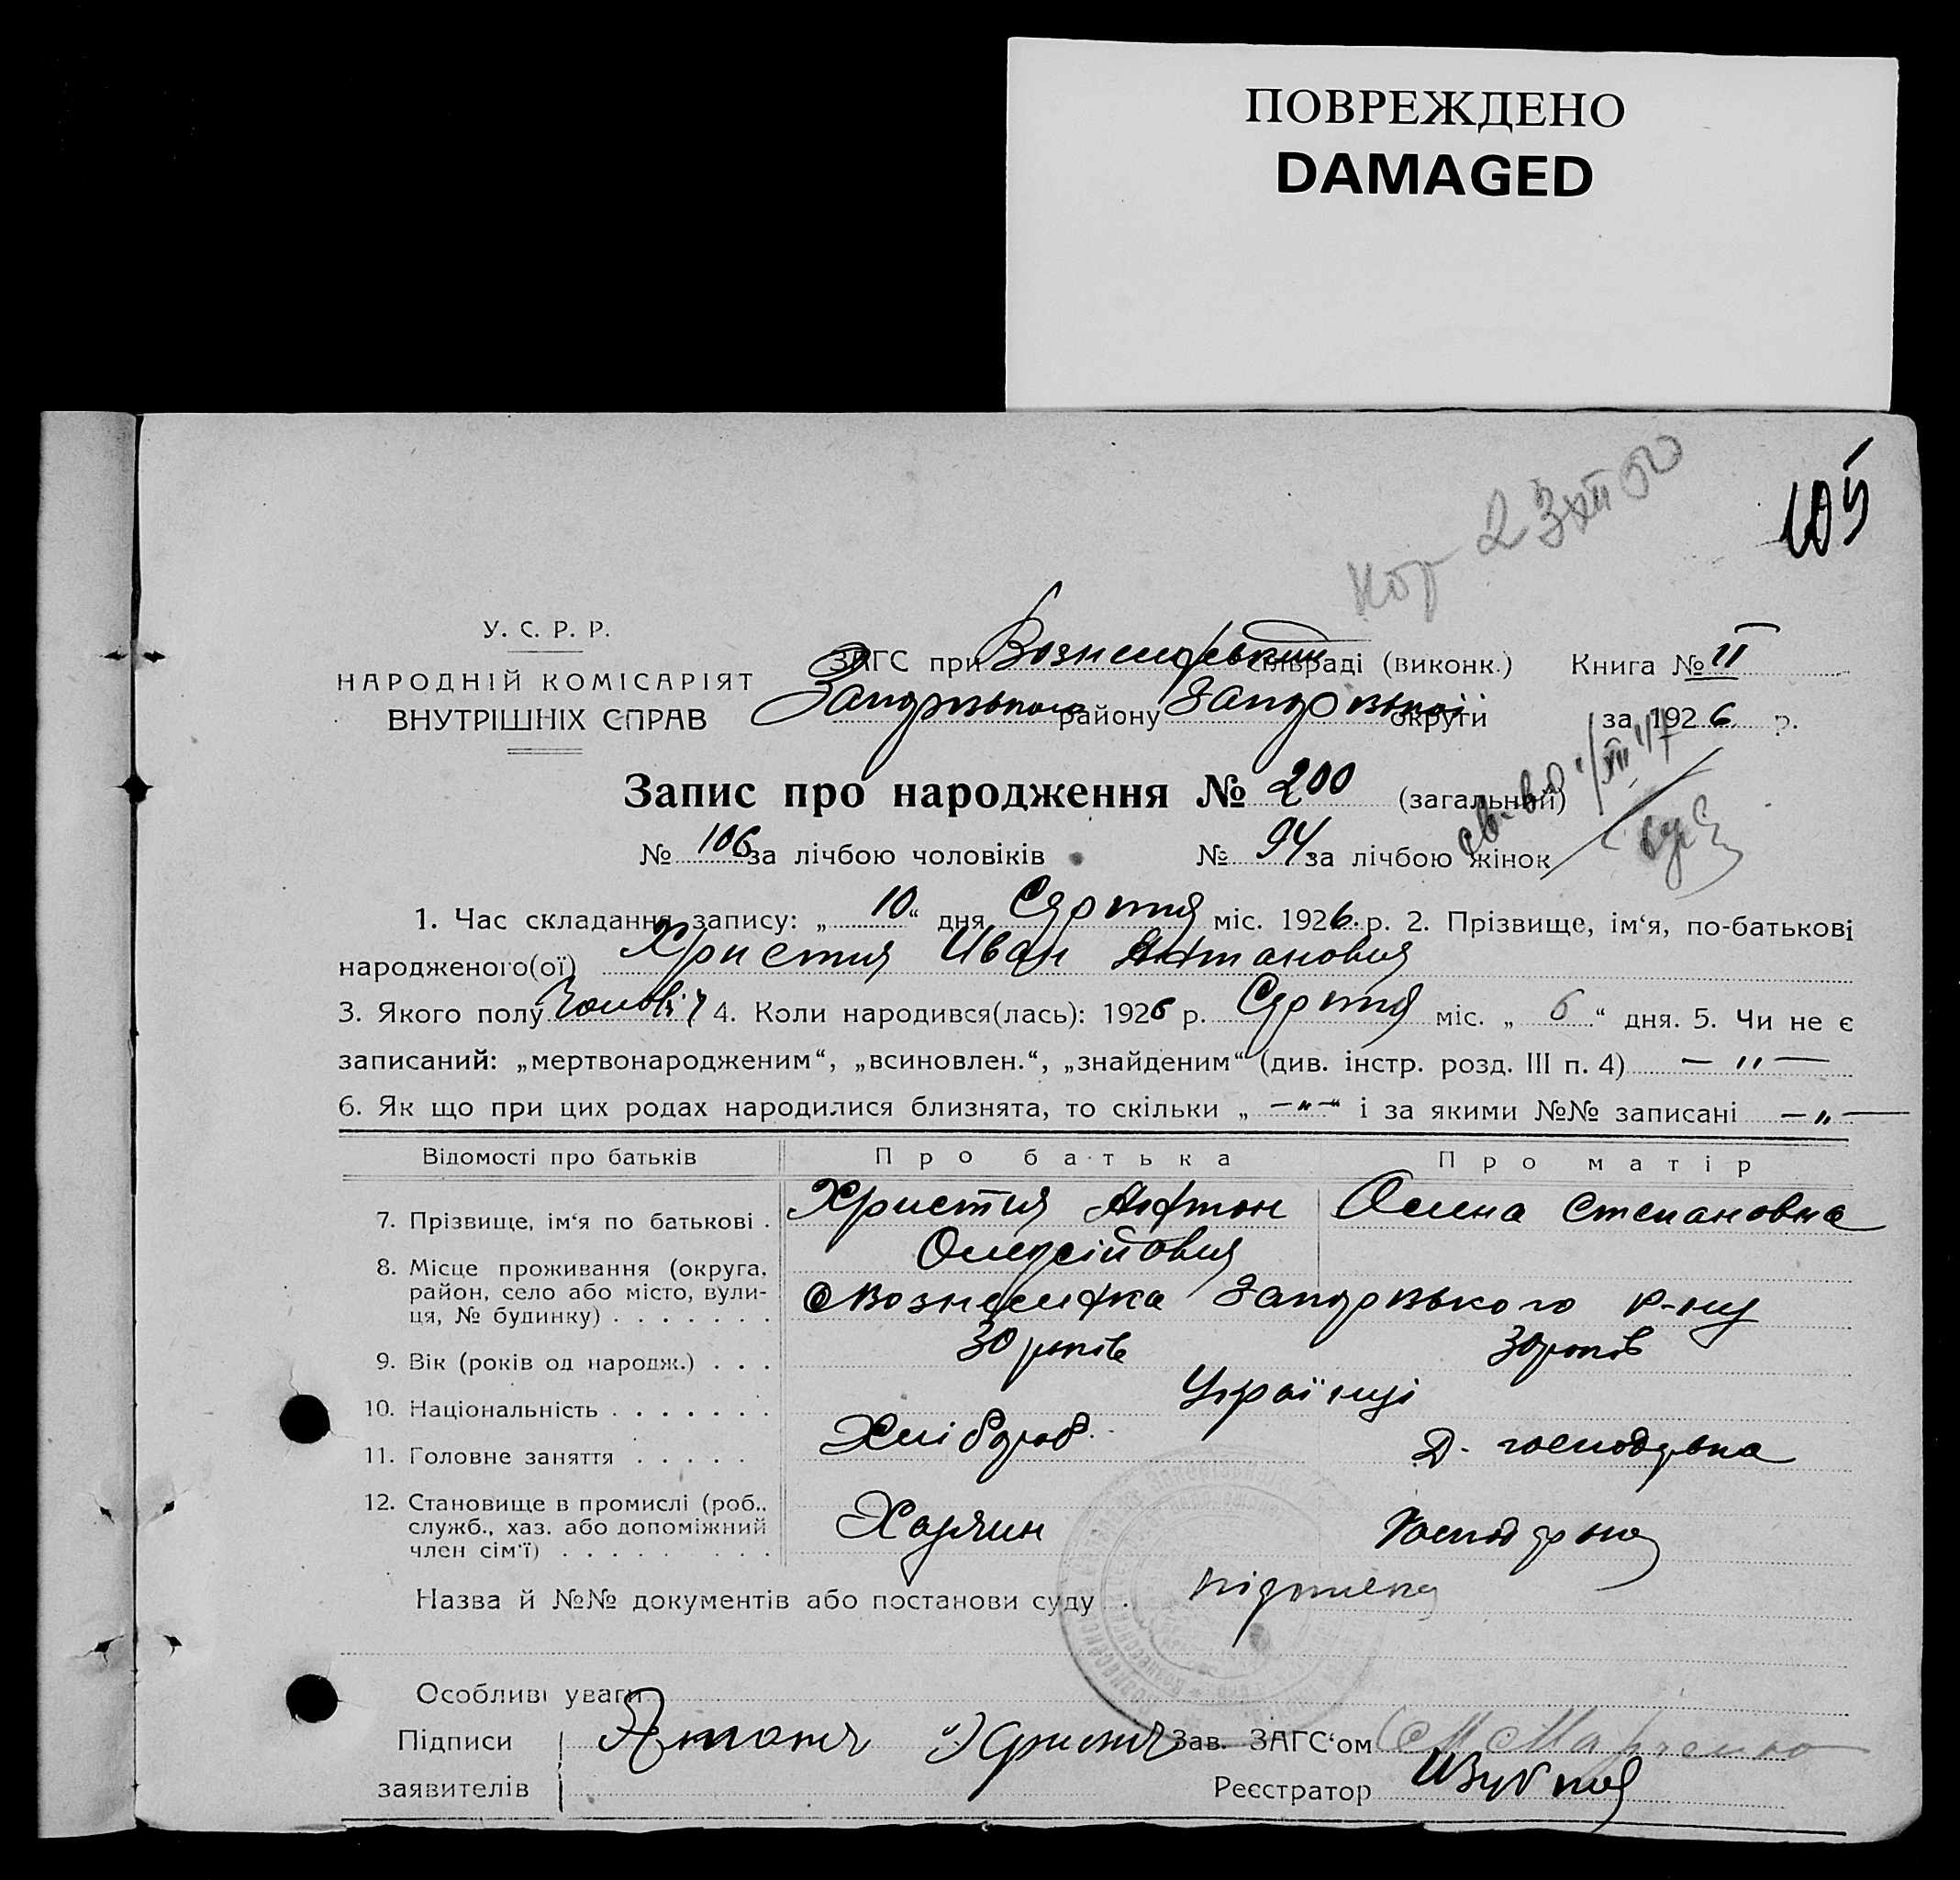 ПОВРЕЖДЕНО
DAMAGED
У. С. Р. Р.
НАРОДНІЙ КОМІСАРІЯТ
ВНУТРІШНІХ СПРАВ
ЗАГС при сільраді (виконк.) Книга № II
району округи за 1926 р.
Запис про народження № 200 (загальний)
№ 106 за лічбою чоловіків № 94 за лічбою жінок
1. Час складання запису: „ 10 “ дня Серпня міс. 1926 р. 2. Прізвище, ім‘я, по-батькові
народженого(ої) Христич Иван Антанович
3. Якого полу Чоловіч 4. Коли народився(лась): 1926 р. Серпня міс. „ 6 “ дня. 5. Чи не є
записаний: „мертвонародженим“, „всиновлен.“, „знайденим“ (див. інстр. розд. III п. 4) — „ —
6. Як що при цих родах народилися близнята, то скільки „ —„— “ і за якими №№ записані —„—
Відомості про батьків Про батька Про матір
7. Прізвище, ім‘я по батькові . Христич Антон Олена Степановна
Олексійович
8. Місце проживання (округа, район, село або місто, вулиця, № будинку) . . . . . . . Вознесенка Запорізького р-ну
9. Вік (років од народж.) . . . 30 років 30 років
10. Національність . . . . . . . Українці
11. Головне заняття . . . . . Хлібороб Д. господарка
12. Становище в промислі (роб., служб., хаз. або допоміжний член сім‘ї) . . . . . . . . Хазяин Господарка
Назва й №№ документів або постанови суду .
Особливі уваги
Підписи Зав. ЗАГС‘ом
заявителів Реєстратор